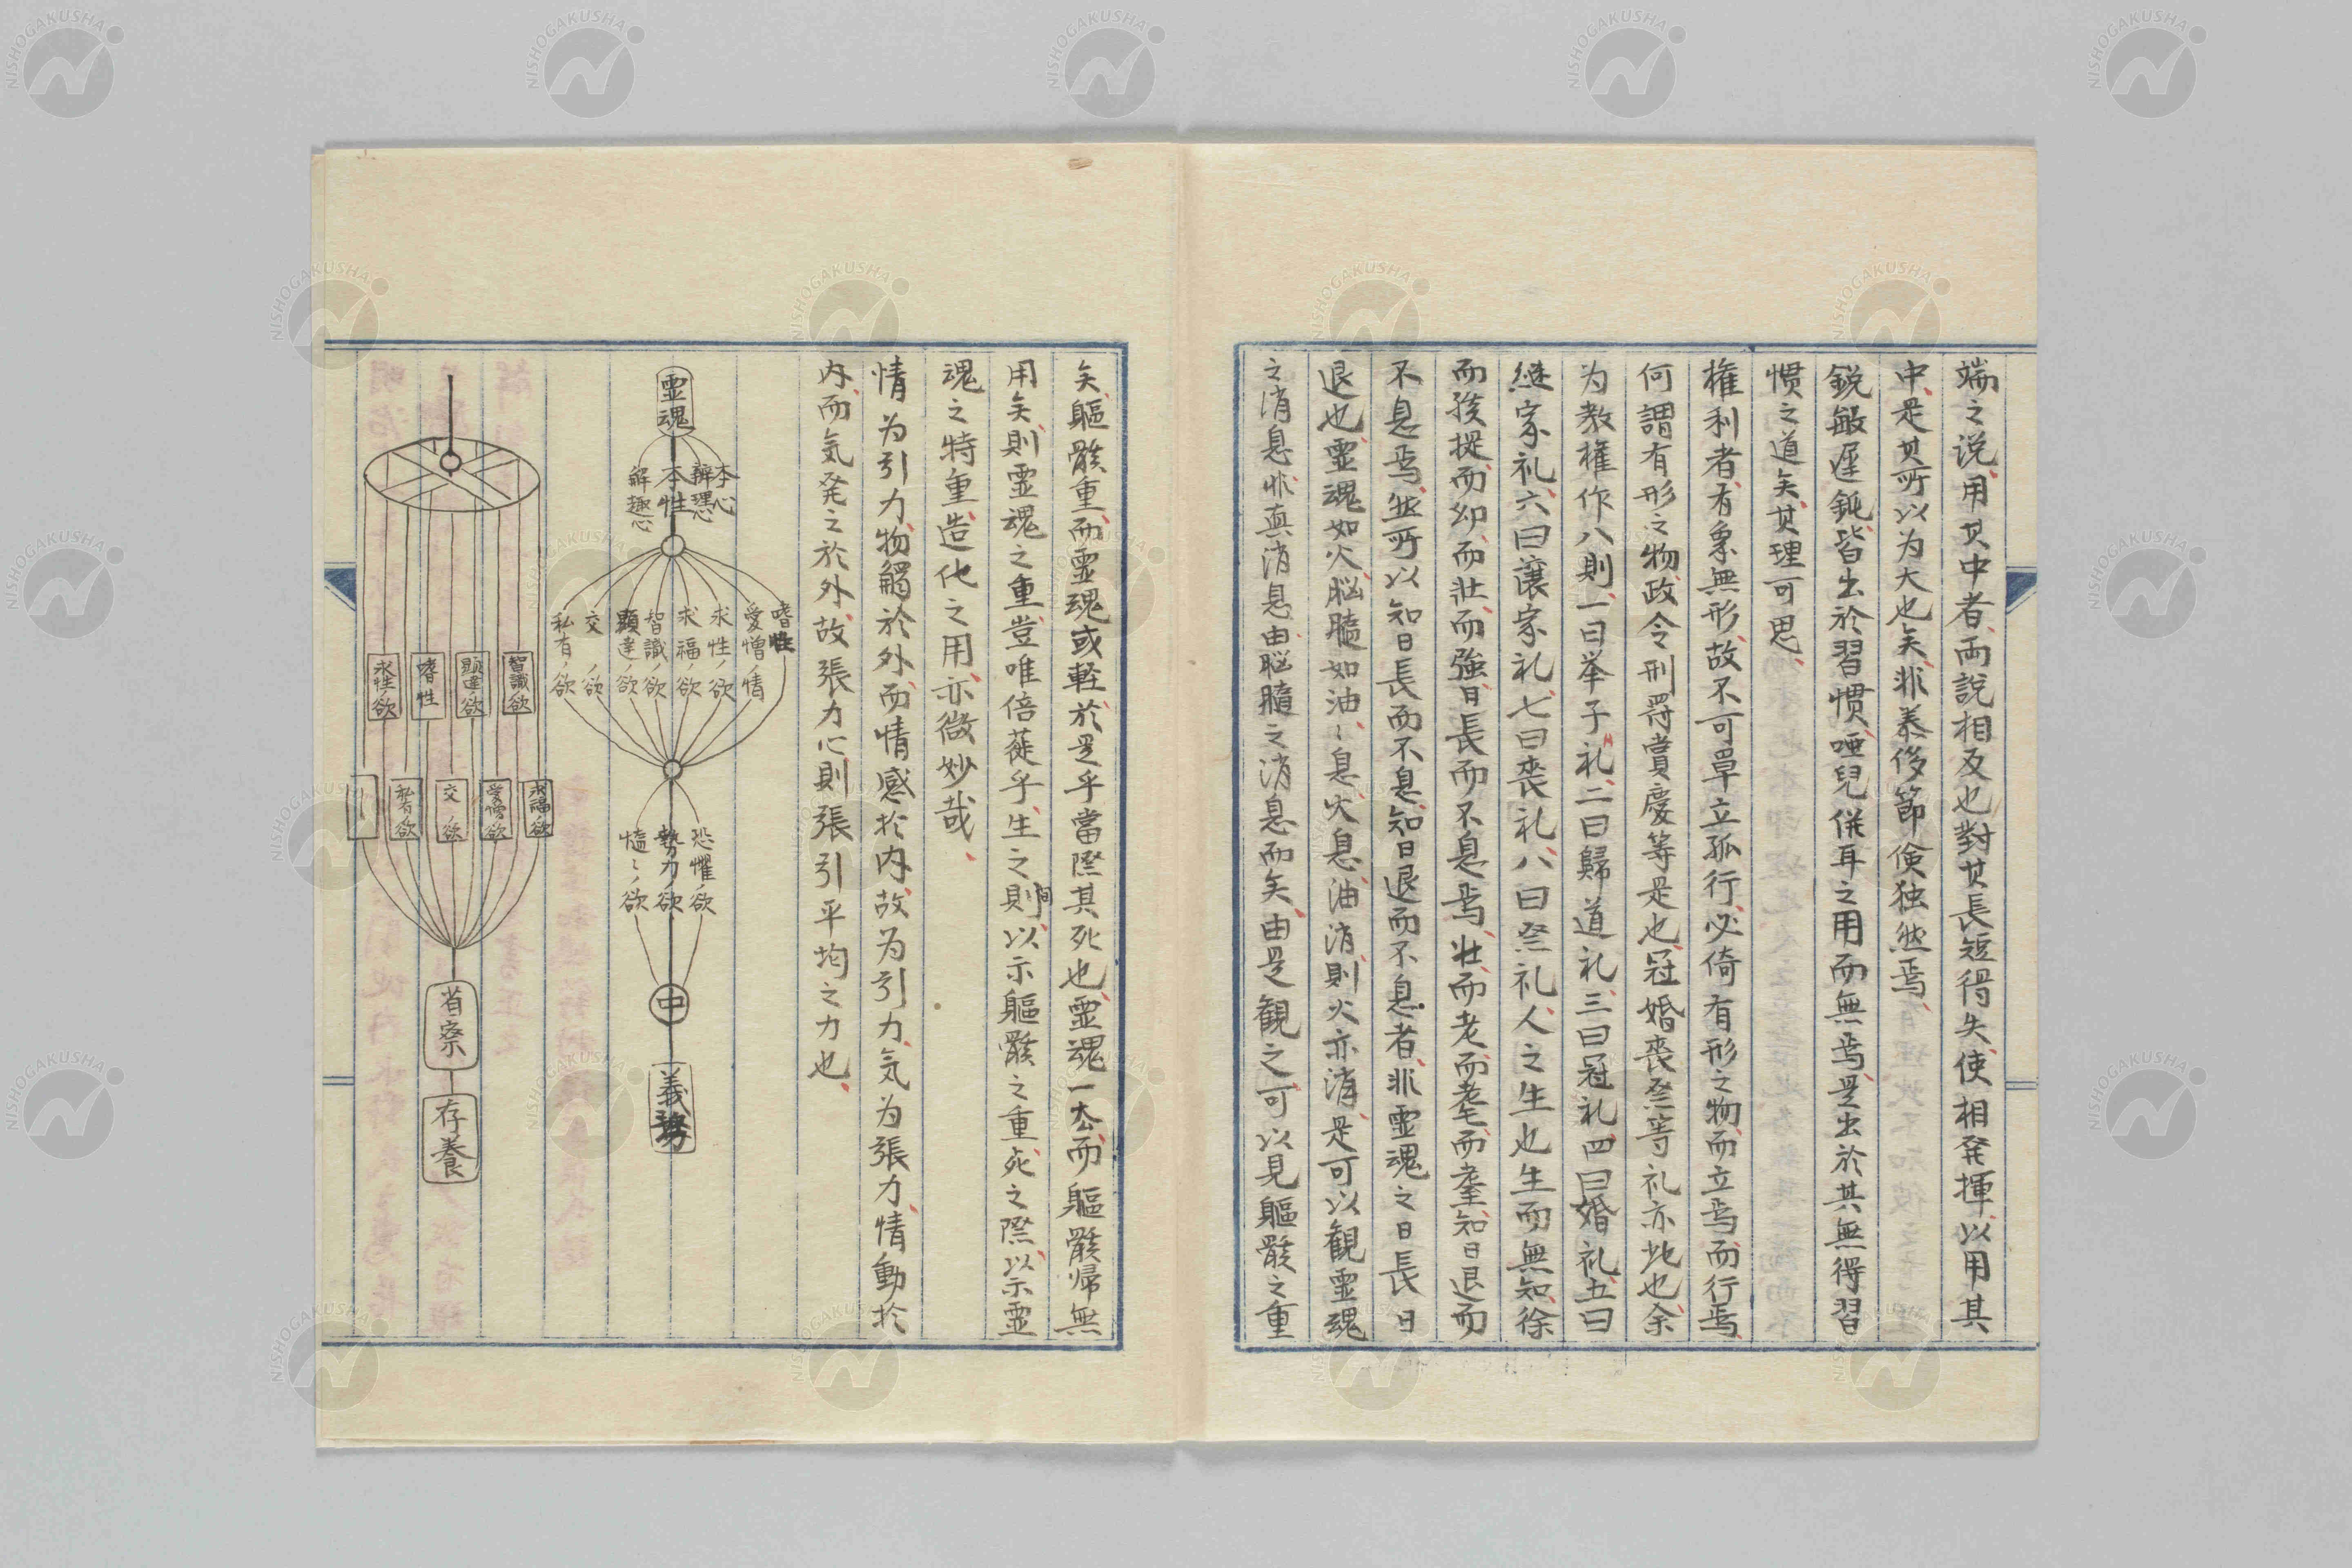 端之説、用其中者、両説相反也、對其長短得失、使相発揮、以用其
中、是其所以为大也矣、非泰侈節倹独然焉、
鋭敏遅鈍、皆出於習慣、唖兒併耳之用而無焉、是出於其無得習
慣之道矣、其理可思、
権利者、有象無形、故不可単立孤行、必倚有形之物、而立焉、而行焉、
何謂有形之物、政令刑罸賞慶等是也、冠婚喪祭等礼亦此也、余
为教権作八則、一曰挙子礼、二曰歸道礼、三曰冠礼、四曰婚礼、五曰
継家礼、六曰譲家礼、七曰喪礼、八曰祭礼、人之生也、生而無知、徐
而孩提、而幼、而壮、而強、日長而不息焉、壮而老、而耄、而耋、知日退而
不息焉、然所以知日長而不息、知日退而不息者、非霊魂之日長日
退也、霊魂如火、脳髄如油、〻息火息、油消則火亦消、是可以観霊魂
之消息、非真消息、由脳髄之消息而矣、由是観之、可以見軀骸之重
矣、軀骸重、而霊魂或軽、於是乎當際其死也、霊魂一去、而軀骸帰無
用矣、則霊魂之重、豈唯倍蓰乎、生之間則、以示軀骸之重、死之際、以示霊
魂之特重、造化之用、亦微妙哉、
情为引力、物觸於外、而情感於内、故为引力、気为張力、情動於
内、而気発之於外、故張力心則張引平均之力也、
霊魂
本心
辨理心
本性
解趣心
嗜性
愛憎ノ情
求性ノ欲
求福ノ欲
智識ノ欲
顕達ノ欲
交ノ欲
私有ノ欲
恐懼ノ欲
勢力ノ欲
中
義務
智識ノ欲
顕達ノ欲
嗜性
求性ノ欲
求福ノ欲
愛憎ノ欲
交ノ欲
私有ノ欲
省察
存養
NISHOGAKUSHA